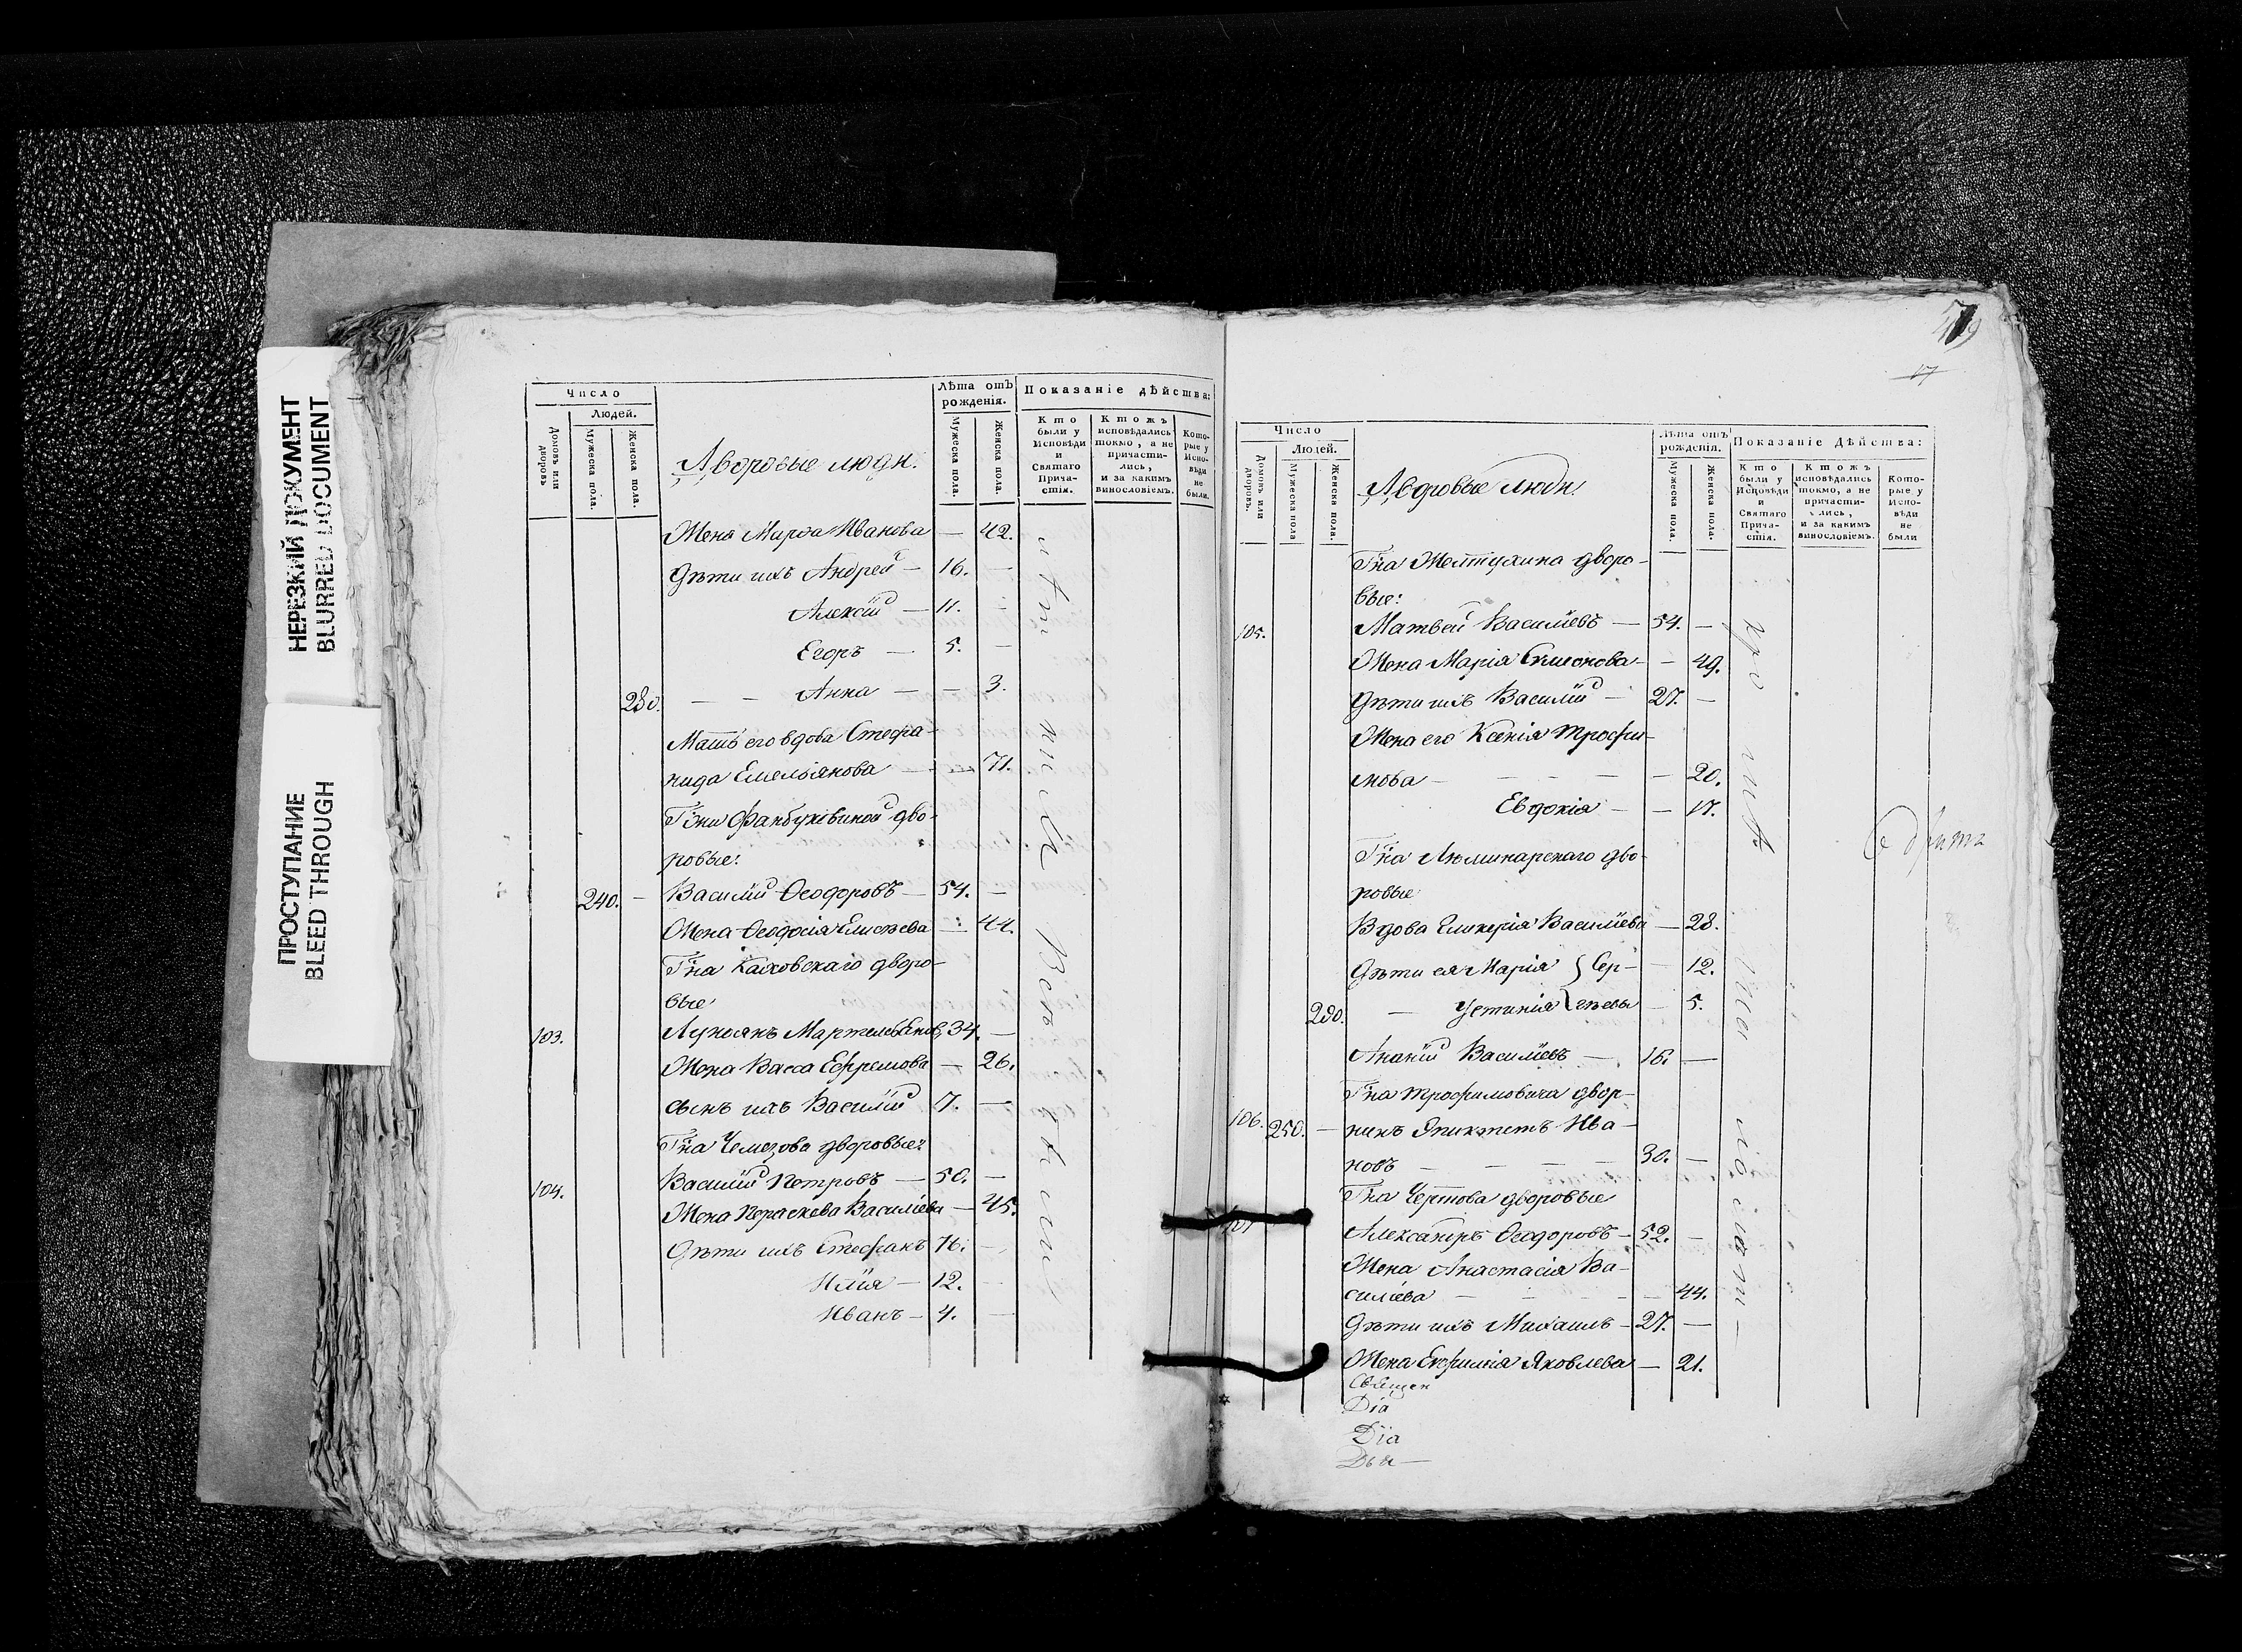 НЕРЕЗКИЙ ДОКУМЕНТ
BLURRED DOCUMENT
ПРОСТУПАНИЕ
BLEED THROUGH
Число
Людей.
Домовъ или дворовъ
Мужеска пола.
Женска пола.
Дворовые люди.
Лѣта отъ рожденія.
Мужеска пола.
Женска пола.
Показаніе дѣйства:
Кто были у Исповѣди и Святаго Причастія.
Ктожъ исповѣдались токмо, а не причастились, и за какимъ винословіемъ.
Которые у Исповѣди не были.
Жена Марѳа Иванова — 42.
Дѣти ихъ Андрей — 16. —
Алексій — 11. —
Егоръ — 5. —
230. — — Анна — — 3.
Мать его вдова Стефа-
нида Емельянова — 71.
Гжи дво-
ровые:
240. — Василій Ѳеодоровъ — 54. —
Жена Ѳеодосія Елисѣева — 44.
Гна Каховскаго дворо-
вые
103. Лукіянъ 34. —
Жена Васса Ефремова — 26.
сынъ ихъ Василій 7. —
Гна Чемезова дворовые:
104. Василій Петровъ — 50. —
Жена Параскева Василіева — 45.
Дѣти ихъ Стефанъ 16. —
Илія — 12. —
Иванъ — 4. —
Всѣ
17
Число
Людей.
Домовъ или дворовъ.
Мужеска пола
Женска пола.
Дворовые люди.
Лѣта отъ рожденія.
Мужеска пола.
Женска пола.
Показаніе Дѣйства:
Кто были у Исповѣди и Святаго Причастія.
Ктожъ исповѣдались токмо, а не причастились, и за какимъ винословіемъ.
Которые у Исповѣди не были
Гна Желтухина дворо-
вые:
105. Матвей Василіевъ — 54. —
Жена Марія Симонова — — 49.
Дѣти ихъ Василій — 27. —
Жена его Ксенія Трофи-
мова — — — — — 20.
Евдокія — — 17.
Гна Люминарскаго дво-
ровые
Вдова Гликерія Василіева — 28.
Дѣти ея Марія } Сер- — 12.
290. — Устинія } гѣевы — 5.
Ананій Василіевъ — 16. —
Гна Трофимовича двор-
106. 250. — никъ Епиктетъ Ива-
новъ — — — — 30. —
Гна Чертова дворовые
107 Александръ Ѳеодоровъ — 52. —
Жена Анастасія Ва-
силіева — — — — 44.
Дѣти ихъ Михаилъ — 27. —
Жена Евфимія Яковлева — 21.
Священ
Діа
Діа
Дья —